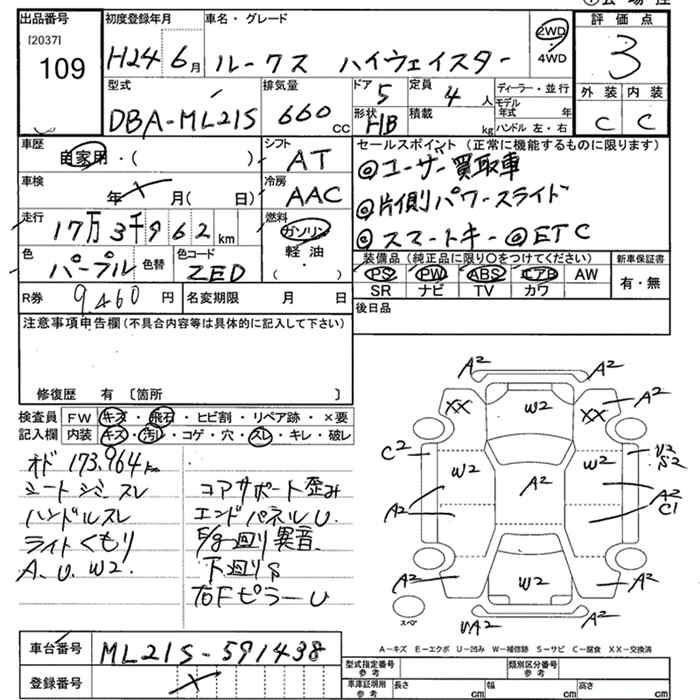 出品番号 初度登録年月 車名・グレード 評価点
[2037] 109 H24 6月 ルークス ハイウェイスター 2WD 4WD 3
型式 排気量 ドア 定員 ディーラー・並行 外装 内装
DBA-ML21S 660 cc 5 4人 モデル年式 年 C C
形状 HB 積載 kg ハンドル 左・右
車歴 自家用・( ) シフト AT セールスポイント(正常に機能するものに限ります)
◎ユーザー買取車
車検 年 月( 日) 冷房 AAC
◎片側パワースライド
走行 17万3千962km 燃料 ガソリン 軽油 ・( )
◎スマートキー ◎ETC
色 パープル 色替 色コード ZED
装備品(純正品に限り○をつけてください) 新車保証書
PS PW ABS エアB AW 有・無
SR ナビ TV カワ
R券 9,460円 名変期限 月 日
後日品
注意事項申告欄(不具合内容等は具体的に記入して下さい)
修復歴 有 〔箇所 〕
検査員 FW キズ・飛石・ヒビ割・リペア跡・×要
記入欄 内装 キズ・汚レ・コゲ・穴・スレ・キレ・破レ
オド 173,964km
シートシミ スレ
ハンドルスレ
ライトくもり
A.U.W2.
コアサポート歪み
エンドパネルU.
E/g廻り異音.
下廻りS
右FピラーU
A2 A2
XX W2 XX A2
C2 W2 A2 W2 U2 S2
A2 A2 C1
A2 W2 A2
スペア UA2 A2
A-キズ E-エクボ U-凹み W-補修跡 S-サビ C-腐食 XX-交換済
車台番号 ML21S-591438
登録番号
型式指定番号 参考 類別区分番号 参考
車庫証明用 参考 長さ cm 幅 cm 高さ cm